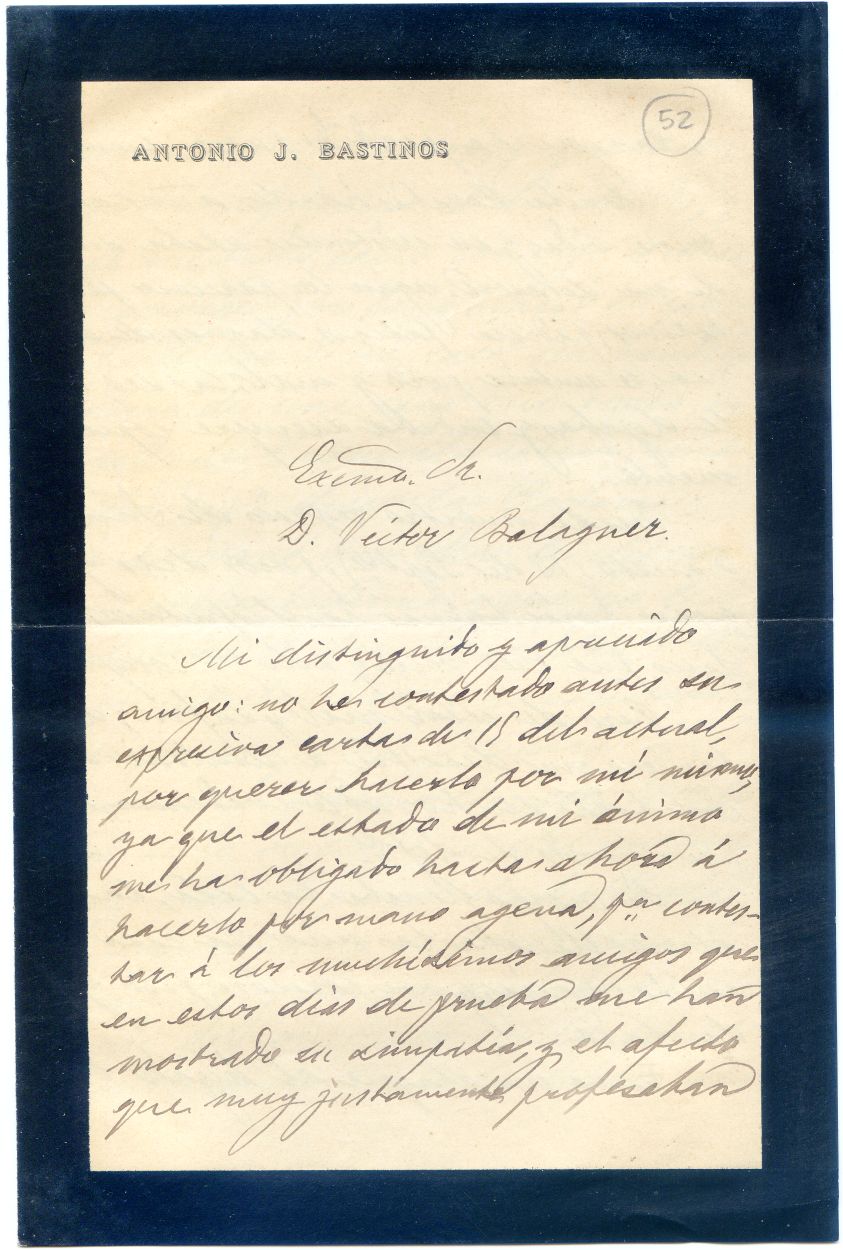 52
ANTONIO J. BASTINOS
Excmo. Sr.
D. Víctor Balaguer.
Mi distinguido y apreciado
amigo: no he contestado antes su
expresiva carta de 15 del actual,
por querer hacerlo por mí mismo,
ya que el estado de mi ánimo
me ha obligado hasta ahora á
hacerlo por mano agena, pª contes-
tar á los muchísimos amigos que
en estos días de prueba me han
mostrado su simpatía, y el afecto
que muy justamente profesaban